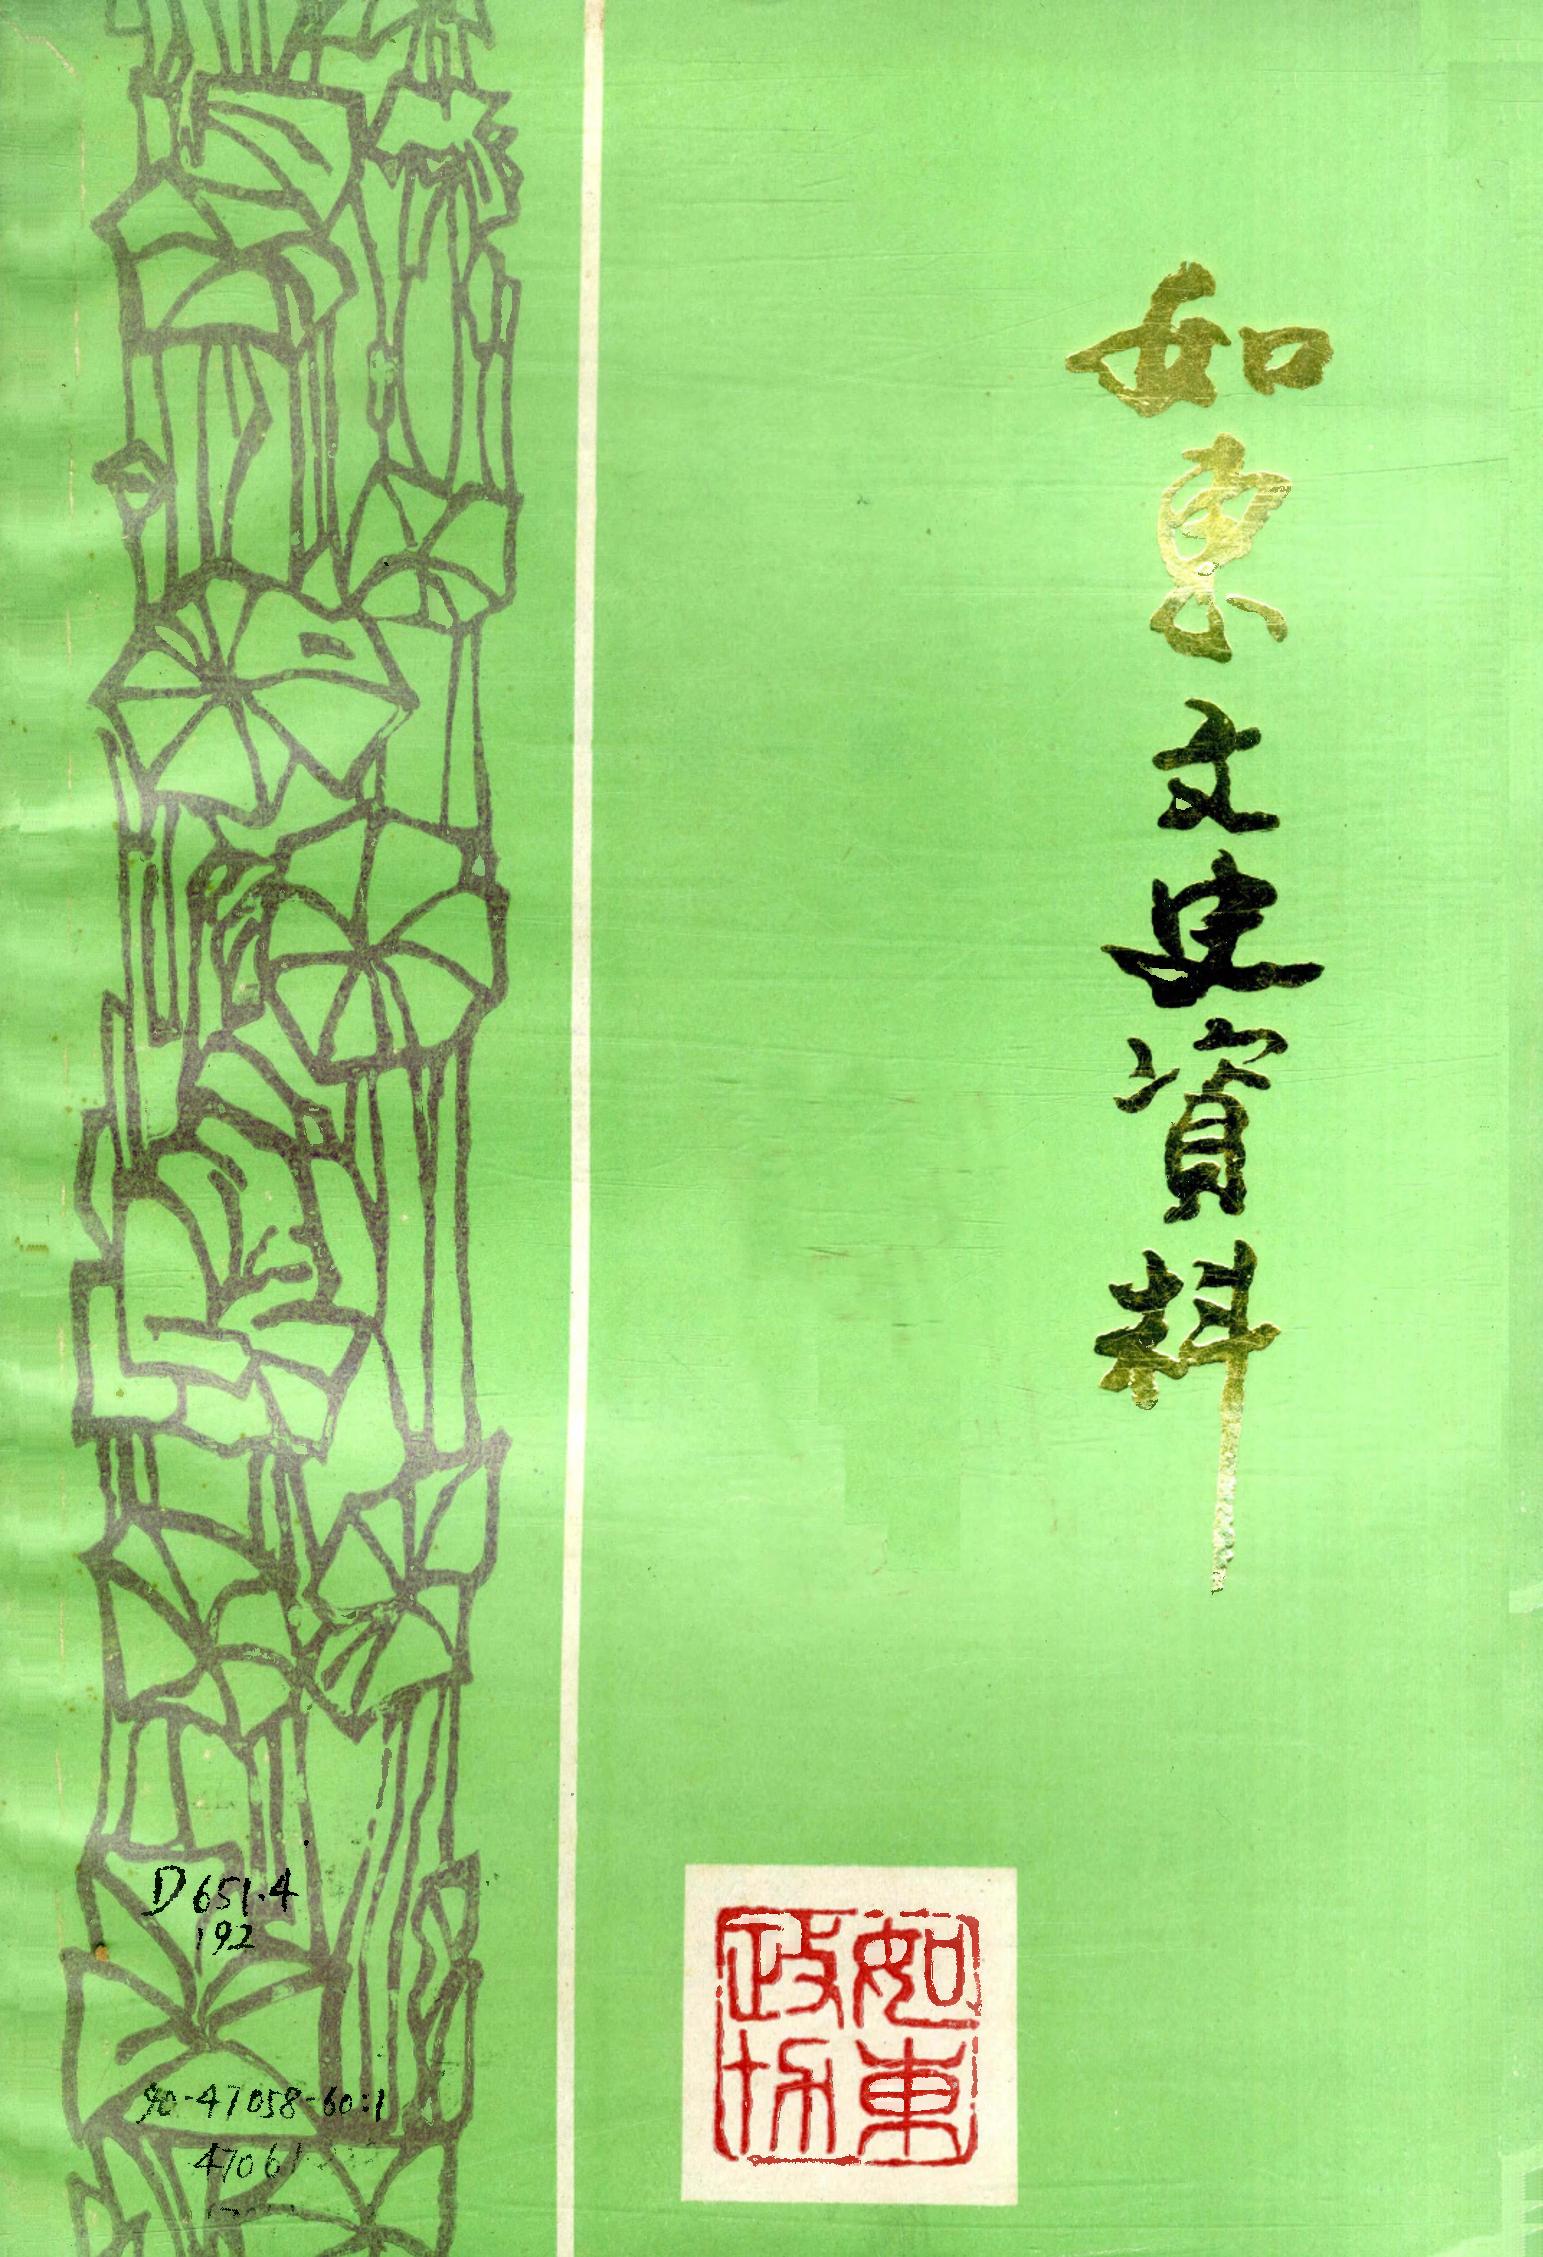 如東文史資料
如東
政协
D651.4
192
90-47058-60:1
47061